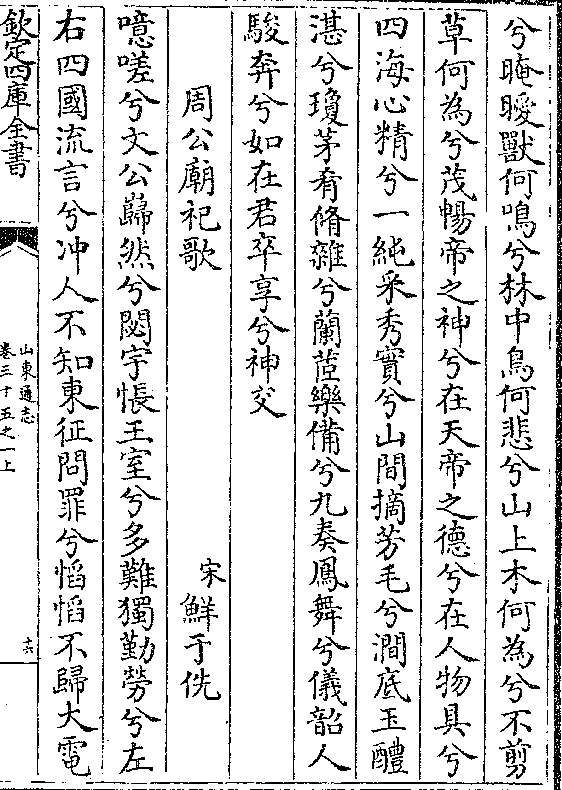 兮晻曖獸何鳴兮林中鳥何悲兮山上木何為兮不剪
草何為兮茂暢帝之神兮在天帝之德兮在人物具兮
四海心精兮一純采秀實兮山間摘芳毛兮澗底玉醴
湛兮瓊茅肴脩雜兮蘭茝樂備兮九奏鳳舞兮儀韶人
駿奔兮如在君卒享兮神交
周公廟祀歌
宋鮮于侁
噫嗟兮文公巋然兮閟宇悵王室兮多難獨勤勞兮左
右四國流言兮冲人不知東征問罪兮慆慆不歸大電
欽定四庫全書
山東通志
卷三十五之一上
十六